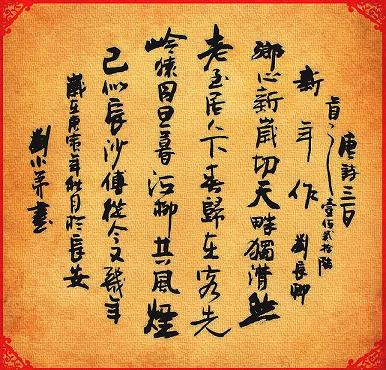 唐詩三百
首之壹佰貳拾
新年作 劉長卿
鄉心新歲切天畔獨潸然
老至居人下春歸在客先
嶺猿同旦暮江柳共風煙
已似長沙傅從今又幾年
歲在庚寅年秋月於長安
劉小書